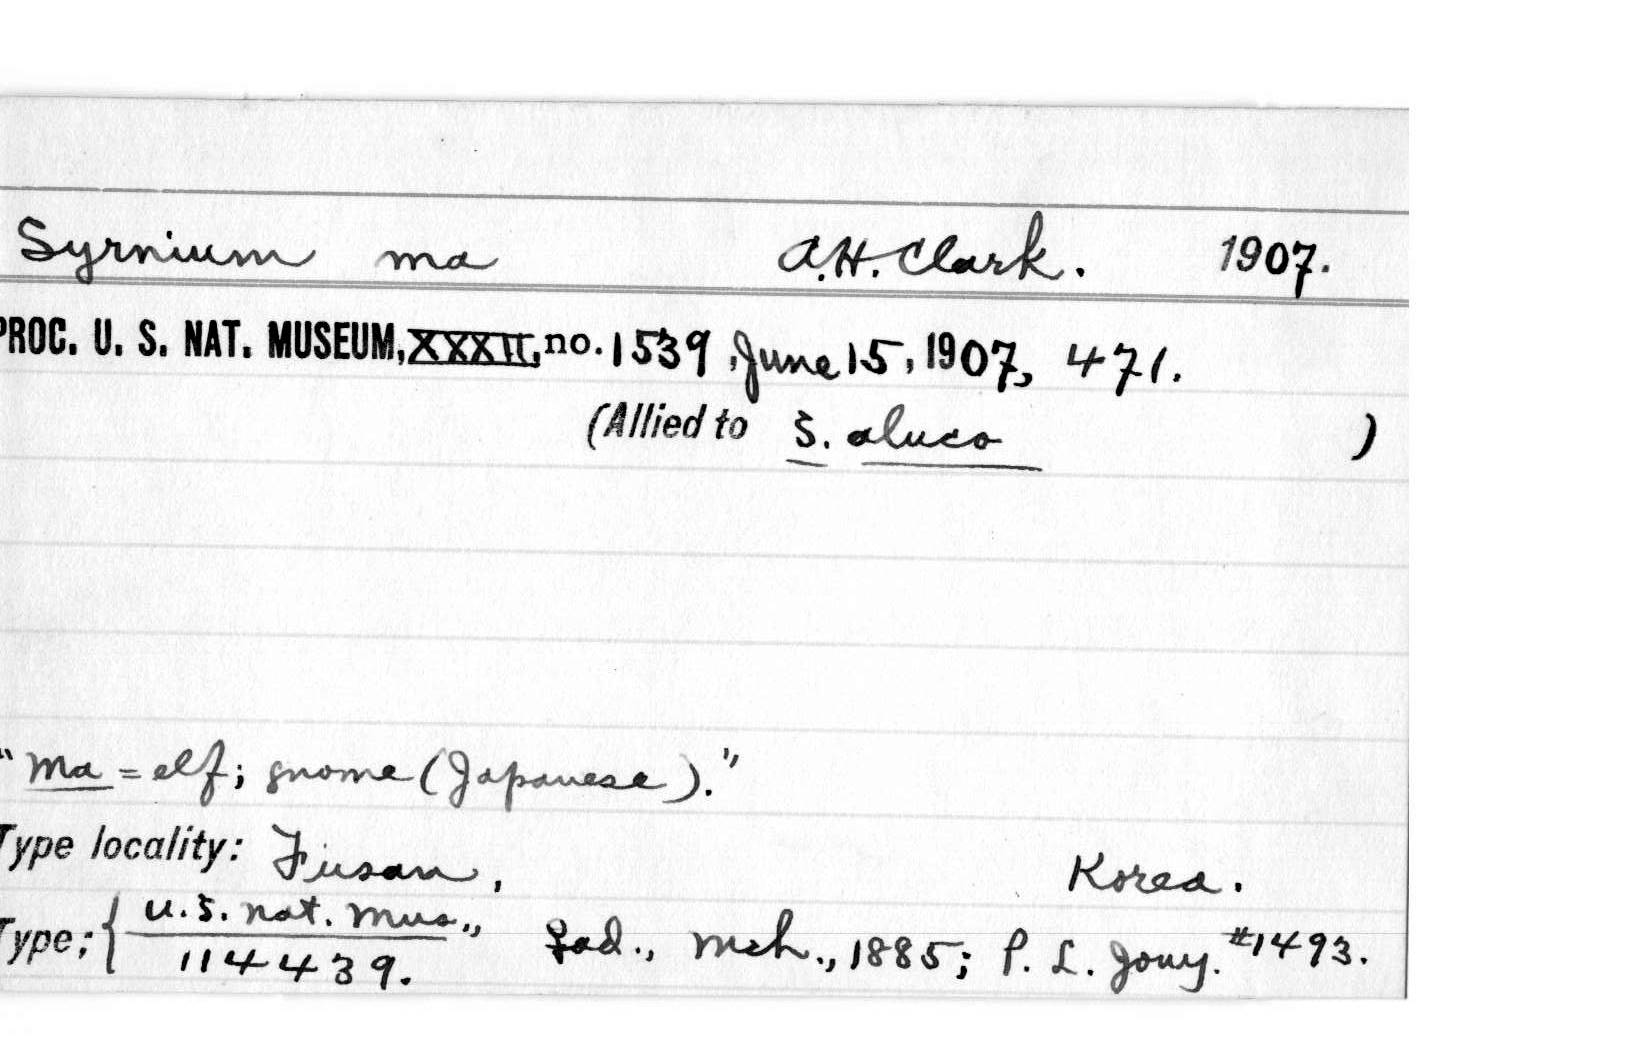 Syrnium ma A.H. Clark. 1907.
PROC. U. S. NAT. MUSEUM, XXXII, no. 1539, June 15, 1907, 471.
(Allied to S. aluco )
"Ma = elf; gnome (Japanese)."
Type locality: Fusan, Korea.
Type: { U.S. Nat. Mus., ad., Mch., 1885; P. L. Jouy. #1493.
114439.